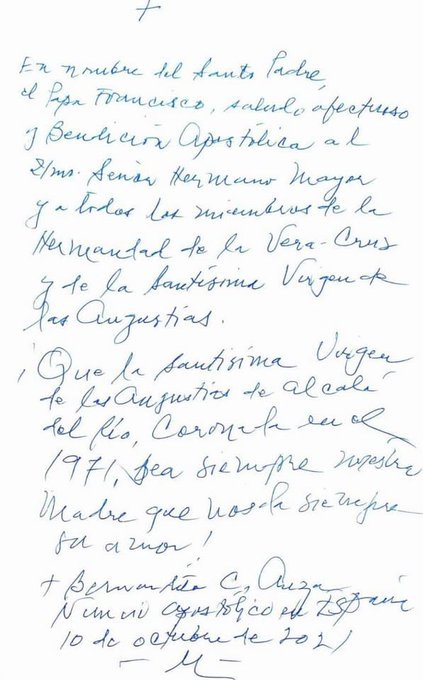 +
En nombre del Santo Padre,
el Papa Francisco, saludo afectuoso
y Bendición Apostólica al
Ilmo. Señor Hermano Mayor
y a todos los miembros de la
Hermandad de la Vera-Cruz
y de la Santísima Virgen de
las Angustias.
¡Que la Santísima Virgen
de las Angustias de Alcalá
del Río, Coronada en el
1971, sea siempre nuestra
Madre que nos da siempre
su amor!
+ Bernardito C. Auza
Nuncio Apostólico en España
10 de octubre de 2021